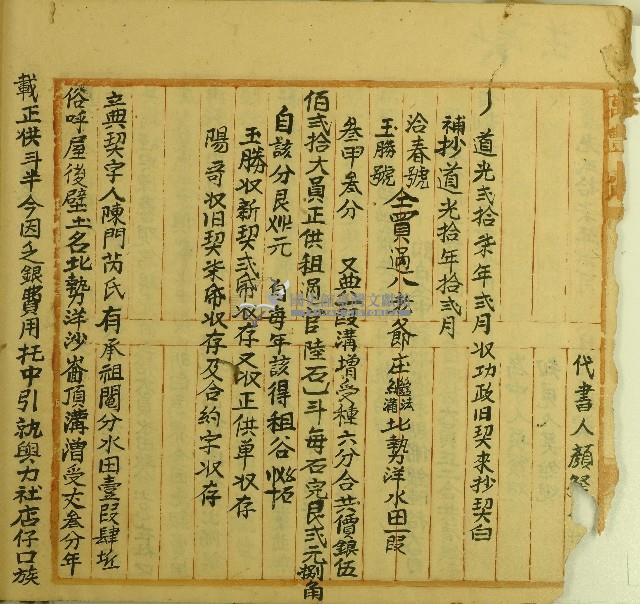 代書人顏
道光貳拾柒年貳月収功政旧契来抄契白
補抄道光拾年拾貳月
洽春號
玉勝號
仝買過八 爺庄繼法 北勢洋水田一段
叁甲叁分 又典一段溝增受種六分合共價銀伍
佰貳拾大員正供租 陸石一斗每石完艮貳元捌角
自該分艮 元 自每年該得租谷
玉勝収新契貳 収存又収正供单収存
陽 収旧契 収存及合約字収存
立典契字人陳門芮氏有承祖鬮分水田壹段肆坵
俗呼屋後壁土名北勢洋沙崙頂溝漕受丈叁分年
載正供斗半今因乏銀費用托中引就與力社店仔口族